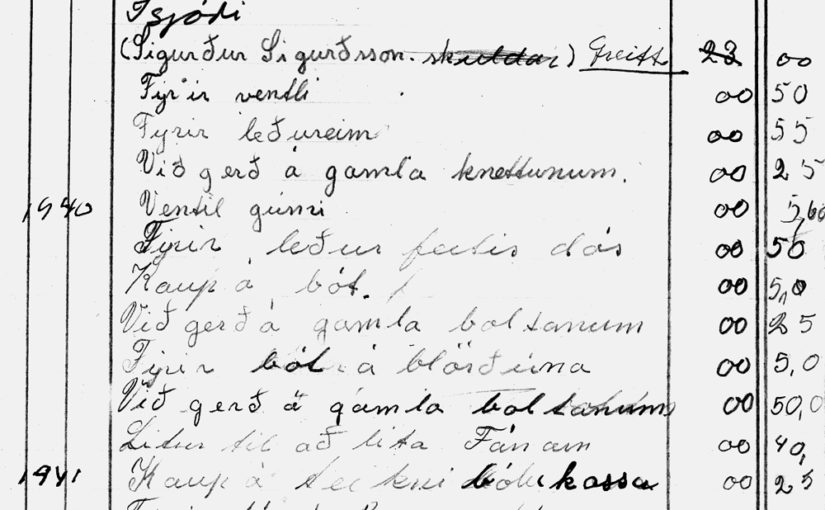 Í sjóði
(Sigurður Sigurðsson. skuldar) Greitt 23 00
Fyrir ventli 00 50
Fyrir leðureim 00 55
Við gerð á gamla knettunum. 00 25
1940 Ventil gúmi 00 5,60
Fyrir leður feitis dós 00 50
Kaup á bót. 00 5,0
Við gerð á gamla boltanum 00 25
Fyrir bót á blöðruna 00 5,0
Við gerð á gamla boltanum 00 50,0
Litur til að lita Fánan 00 40,
1941 Kaup á teikni bólu kassa 00 25